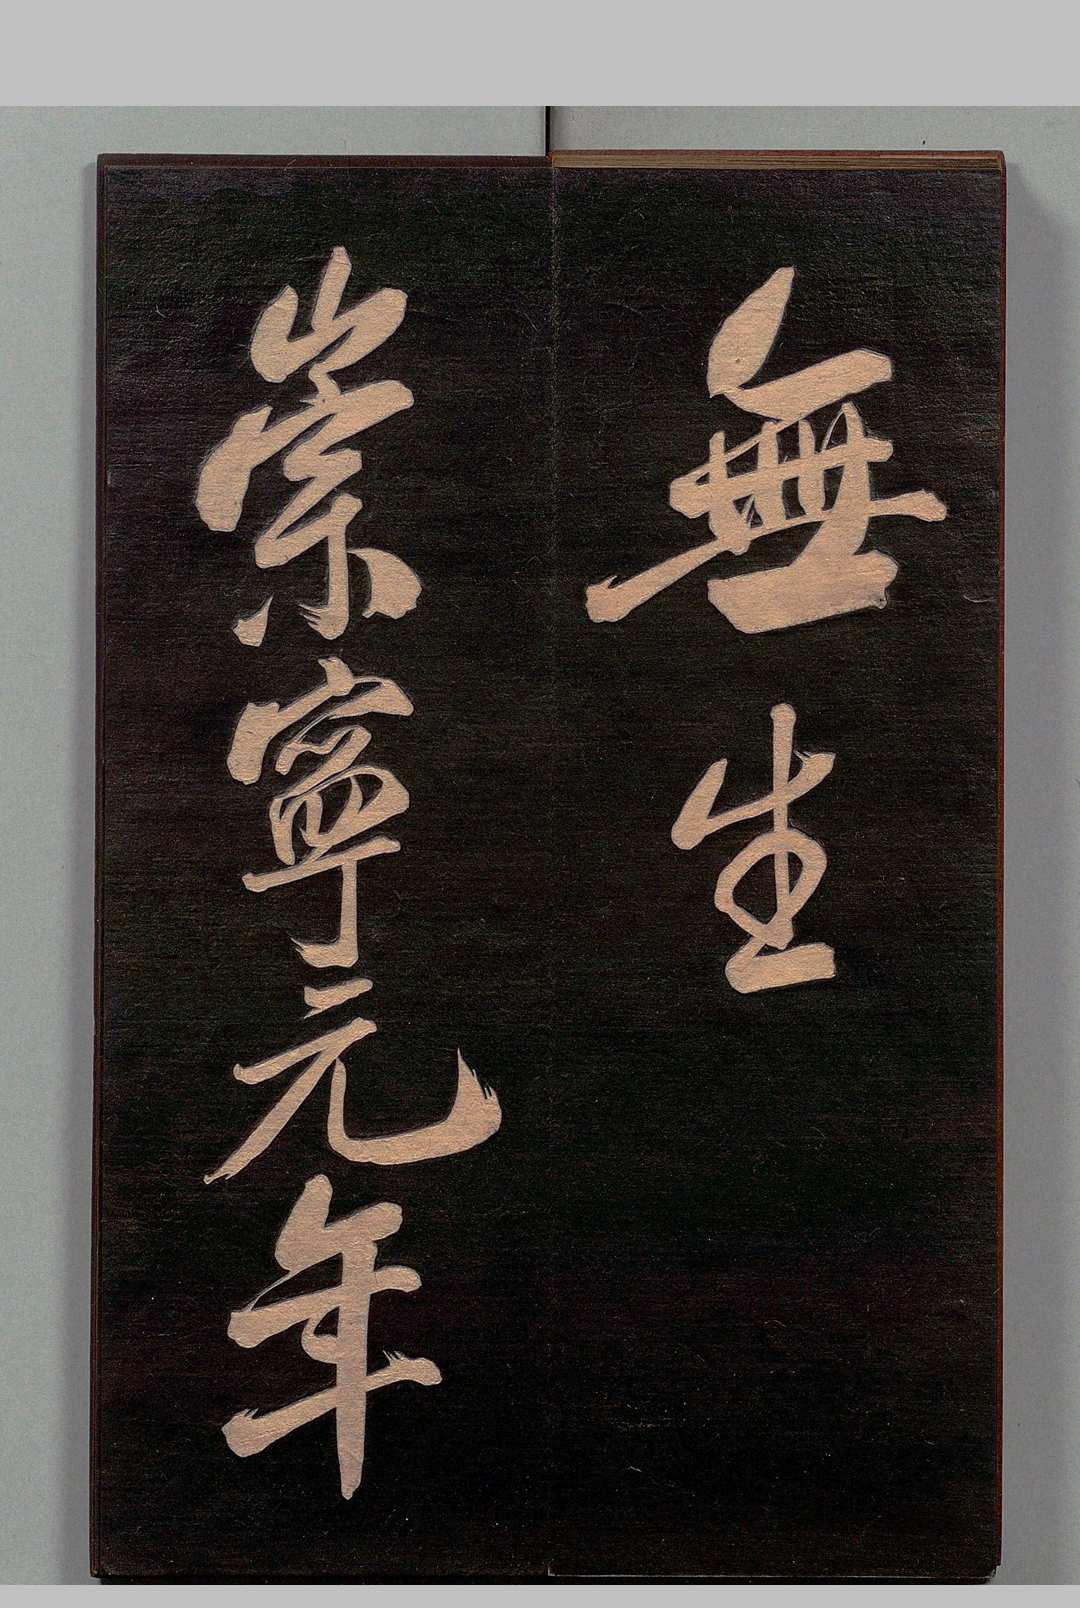 無生
崇寧元年